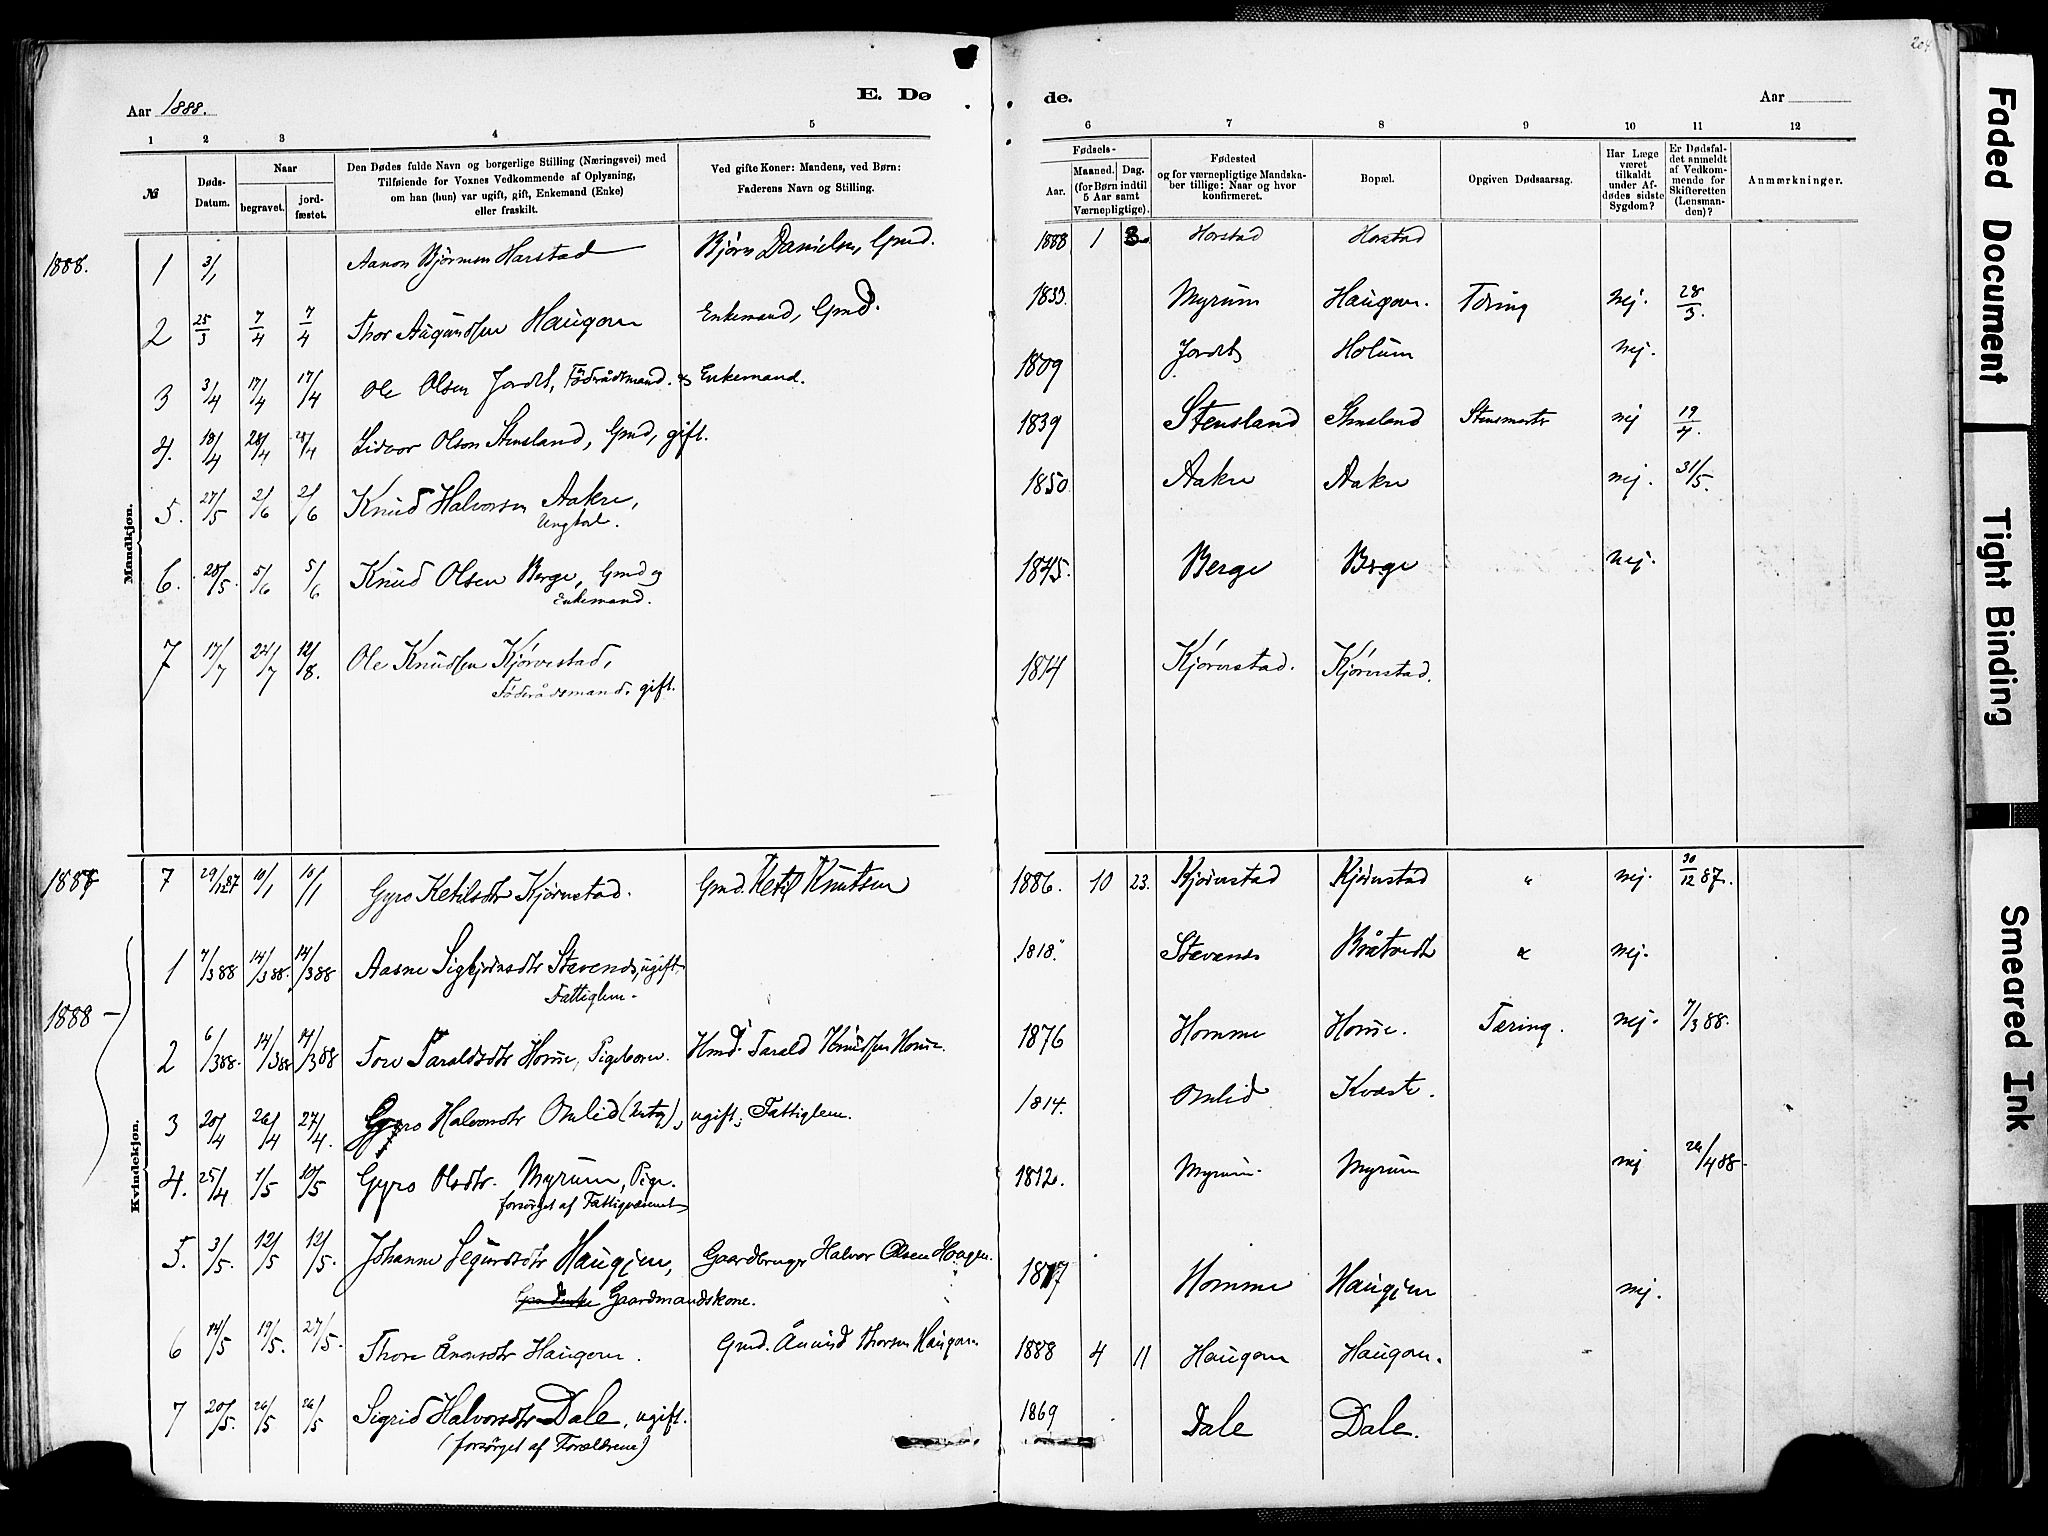 204
Aar 1888.
E. Dø
de.
Aar
1 2 3 4 5
6 7 8 9 10 11 12
№
Døds-
Datum.
Naar
begravet.
jord-
fæstet.
Den Dødes fulde Navn og borgerlige Stilling (Næringsvei) med
Tilføiende for Voxnes Vedkommende af Oplysning,
om han (hun) var ugift, gift, Enkemand (Enke)
eller fraskilt.
Ved gifte Koner: Mandens, ved Børn:
Faderens Navn og Stilling.
Fødsels-
Aar.
Maaned. Dag.
(for Børn indtil
5 Aar samt
Værnepligtige).
Fødested
og for værnepligtige Mandska-
ber tillige: Naar og hvor
konfirmeret.
Bopæl.
Opgiven Dødsaarsag.
Har Læge
været
tilkaldt
under Af-
dødes sidste
Sygdom?
Er Dødsfal-
det anmeldt
af Vedkom-
mende for
Skifteretten
(Lensman-
den)?
Anmærkninger.
Mandkjøn.
1888. 1 3/1 Aanon Bjørnsen Harstad Bjørn Danielsen, Gmd. 1888 1 Horstad Horstad
2 25/3 7/4 7/4 Thor Augundsen Haugom Enkemand, Gmd. 1833. Myrum Haugom. Tæring nej. 28/3.
3 3/4 17/4 17/4 Ole Olsen Jordet, Föderådsmand. & Enkemand. 1809 Jordet Holum nej.
4. 18/4 28/4 28/4 Lidvor Olson Stensland, Gmd, gift. 1839 Stensland Stensland nej 19/4.
5. 27/5 2/6 2/6 Knud Halvorsen Aakre, 1850 Aakre Aakre nej. 31/5.
Ungkarl.
6. 28/5. 5/6 5/6 Knud Olsen Berge, Gmd og 1845. Berge Berge nej.
Enkemand.
7 17/7 22/7 12/8. Ole Knudsen Kjørvestad, 1814 Kjørvestad. Kjørvestad.
Föderådsmand, gift.
1887 7 29/12 87 10/1 10/1 Gyro Ketilsdtr Kjørvestad. Gmd. Ketil Knutsen 1886. 10 23. Kjørvestad Kjørvestad " nej. 30/12 87.
Kvindekjøn.
1888 1 7/3 88 14/3 88. 14/3 88 Aasne Sigbjørnsdtr Stavenes, ugift, 1818. Stavenes Bråtvedt " nej.
Fattiglem.
2 6/3 88. 14/3 88 14/3 88 Tore Taraldsdtr Home, Pigebarn. Hmd. Tarald Knudsen Home. 1876 Homme Home. Tæring. nej. 7/3 88.
3 20/4 26/4 27/4. Gyro Halvorsdtr Omlid, ugift; Fattiglem. 1814. Omlid Kvaste.
4. 25/4 1/5 10/5 Gyro Olsdtr. Myrum, Pige. 1812. Myrum. Myrum nej 26/4 88.
forsörget af Fattigvæsenet
5. 3/5. 12/5 12/5. Johanne Segurdsdtr Haugjen, Gaardbruger Halvor Olsen Haugen. 1817 Homme Haugjen nej.
Gaardmandskone.
6 14/5 19/5. 27/5. Thore Ånensdtr Haugom. Gmd. Ånund Thorsen Haugom. 1888 4 11 Haugom Haugom.
7 20/5. 26/5 26/5 Sigrid Halvorsdtr Dale, ugift. 1869 Dale Dale.
(forsörget af Forældrene)
Faded Document
Tight Binding
Smeared Ink